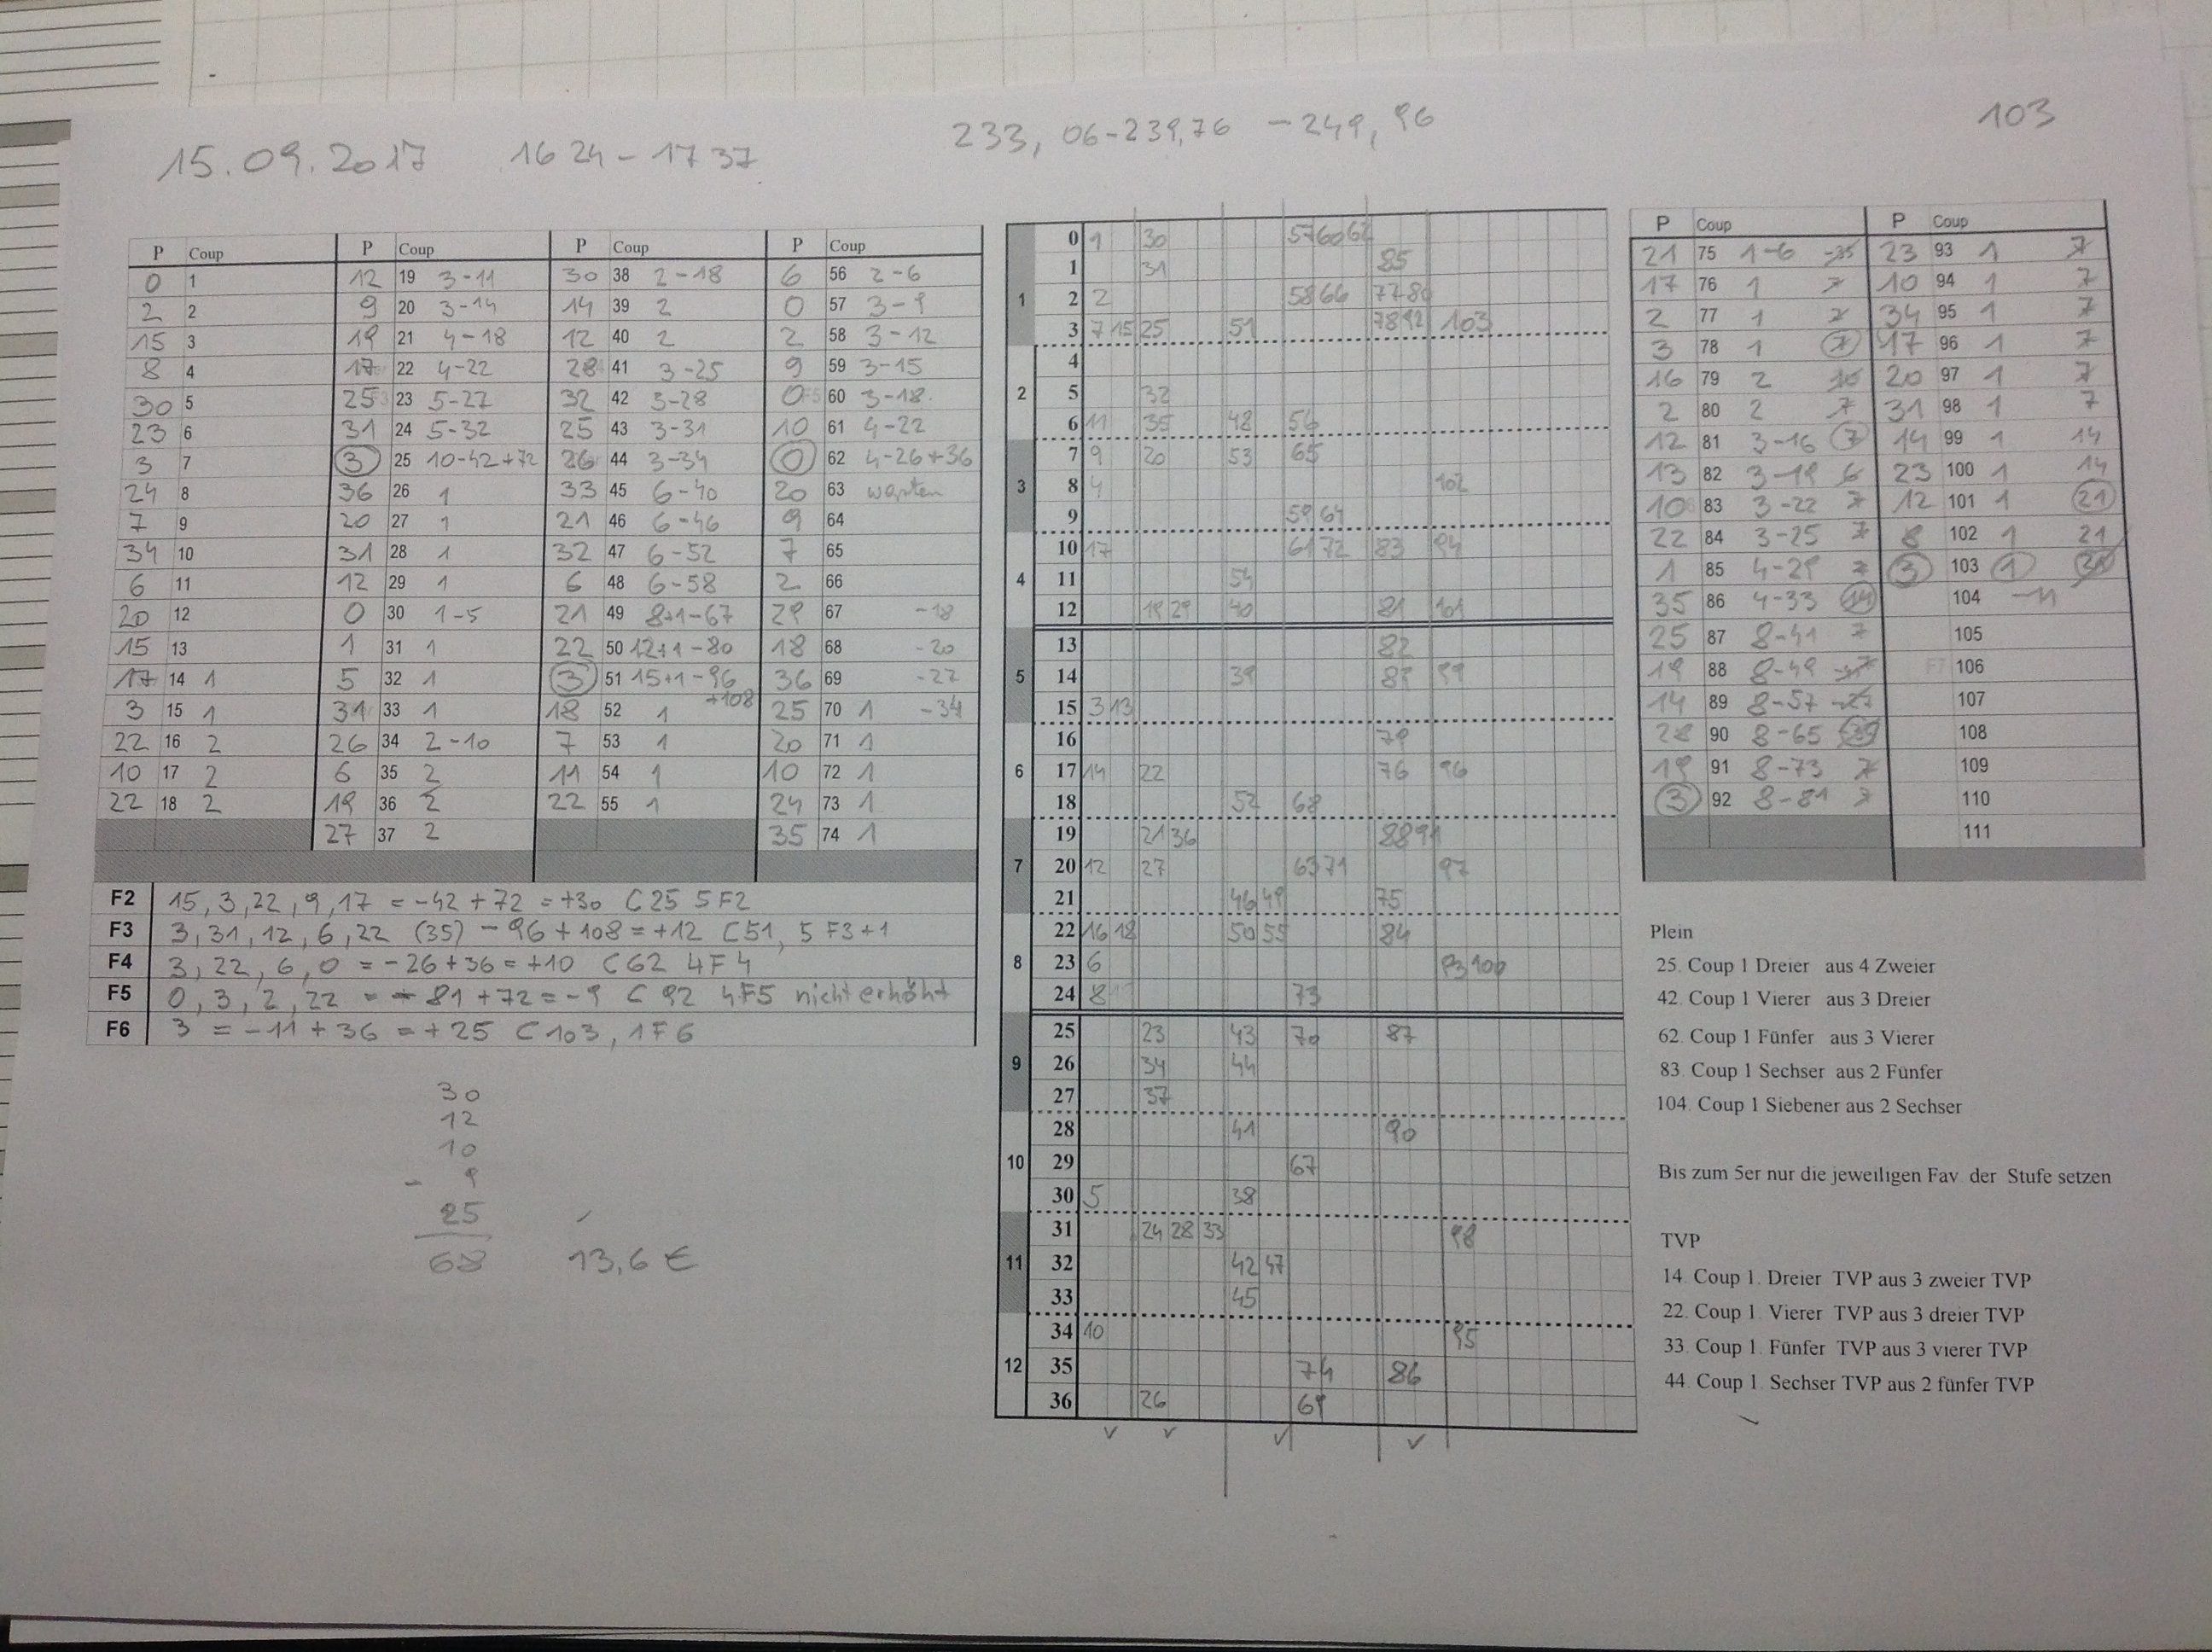 15.09.2017 16 24 – 17 37 233,06 – 239,76 – 249,96 103
P Coup P Coup P Coup P Coup
0 1 12 19 3-11 30 38 2-18 6 56 2-6
2 2 9 20 3-14 14 39 2 0 57 3-9
15 3 19 21 4-18 12 40 2 2 58 3-12
8 4 17 22 4-22 28 41 3-25 9 59 3-15
30 5 25 23 5-27 32 42 3-28 0 60 3-18.
23 6 31 24 5-32 25 43 3-31 10 61 4-22
3 7 3 25 10-42+72 26 44 3-34 0 62 4-26+36
24 8 36 26 1 33 45 6-40 20 63 warten
7 9 20 27 1 21 46 6-46 9 64
34 10 31 28 1 32 47 6-52 7 65
6 11 12 29 1 6 48 6-58 2 66
20 12 0 30 1-5 21 49 8+1-67 29 67 -18
15 13 1 31 1 22 50 12+1-80 18 68 -20
17 14 1 5 32 1 3 51 15+1-96 +108 36 69 -27
3 15 1 31 33 1 18 52 1 25 70 1 -34
22 16 2 26 34 2-10 7 53 1 20 71 1
10 17 2 6 35 2 11 54 1 10 72 1
22 18 2 19 36 2 22 55 1 24 73 1
27 37 2 35 74 1
F2 15, 3, 22, 9, 17 = -42 + 72 = +30 C 25 5 F2
F3 3, 31, 12, 6, 22 (35) - 96 + 108 = +12 C51, 5 F3+1
F4 3, 22, 6, 0 = -26 + 36 = +10 C 62 4 F 4
F5 0, 3, 2, 22 = - 81 + 72 = -9 C 92 4F5 nicht erhöht
F6 3 = -11 + 36 = +25 C 103, 1 F 6
30
12
10
- 9
25
68 13,6 €
1
0 9 30 57 60 62
1 31 85
2 2 58 66 77 80
3 7 15 25 51 78 92 103
2
4
5 32
6 11 35 48 56
3
7 9 20 53 65
8 4 102
9 59 64
4
10 17 61 72 83 94
11 54
12 19 29 40 81 101
5
13 82
14 39 89 99
15 3 13
6
16 79
17 14 22 76 96
18 52 68
7
19 21 36 88 91
20 12 27 63 71 97
21 46 49 75
8
22 16 18 50 55 84
23 6 93 100
24 8 73
9
25 23 43 70 87
26 34 44
27 37
10
28 41 90
29 67
30 5 38
11
31 24 28 33 98
32 42 47
33 45
12
34 10 95
35 74 86
36 26 69
P Coup P Coup
21 75 1-6 23 93 1 7
17 76 1 7 10 94 1 7
2 77 1 7 34 95 1 7
3 78 1 7 17 96 1 7
16 79 2 20 97 1 7
2 80 2 7 31 98 1 7
12 81 3-16 7 14 99 1 14
13 82 3-19 6 23 100 1 14
10 83 3-22 7 12 101 1 21
22 84 3-25 7 8 102 1 21
1 85 4-29 7 3 103 1
35 86 4-33 14 104 -11
25 87 8-41 7 105
19 88 8-49 106
14 89 8-57 107
28 90 8-65 108
19 91 8-73 7 109
3 92 8-81 7 110
111
Plein
25. Coup 1 Dreier aus 4 Zweier
42. Coup 1 Vierer aus 3 Dreier
62. Coup 1 Fünfer aus 3 Vierer
83. Coup 1 Sechser aus 2 Fünfer
104. Coup 1 Siebener aus 2 Sechser
Bis zum 5er nur die jeweiligen Fav. der Stufe setzen
TVP
14. Coup 1. Dreier TVP aus 3 zweier TVP
22. Coup 1. Vierer TVP aus 3 dreier TVP
33. Coup 1. Fünfer TVP aus 3 vierer TVP
44. Coup 1. Sechser TVP aus 2 fünfer TVP